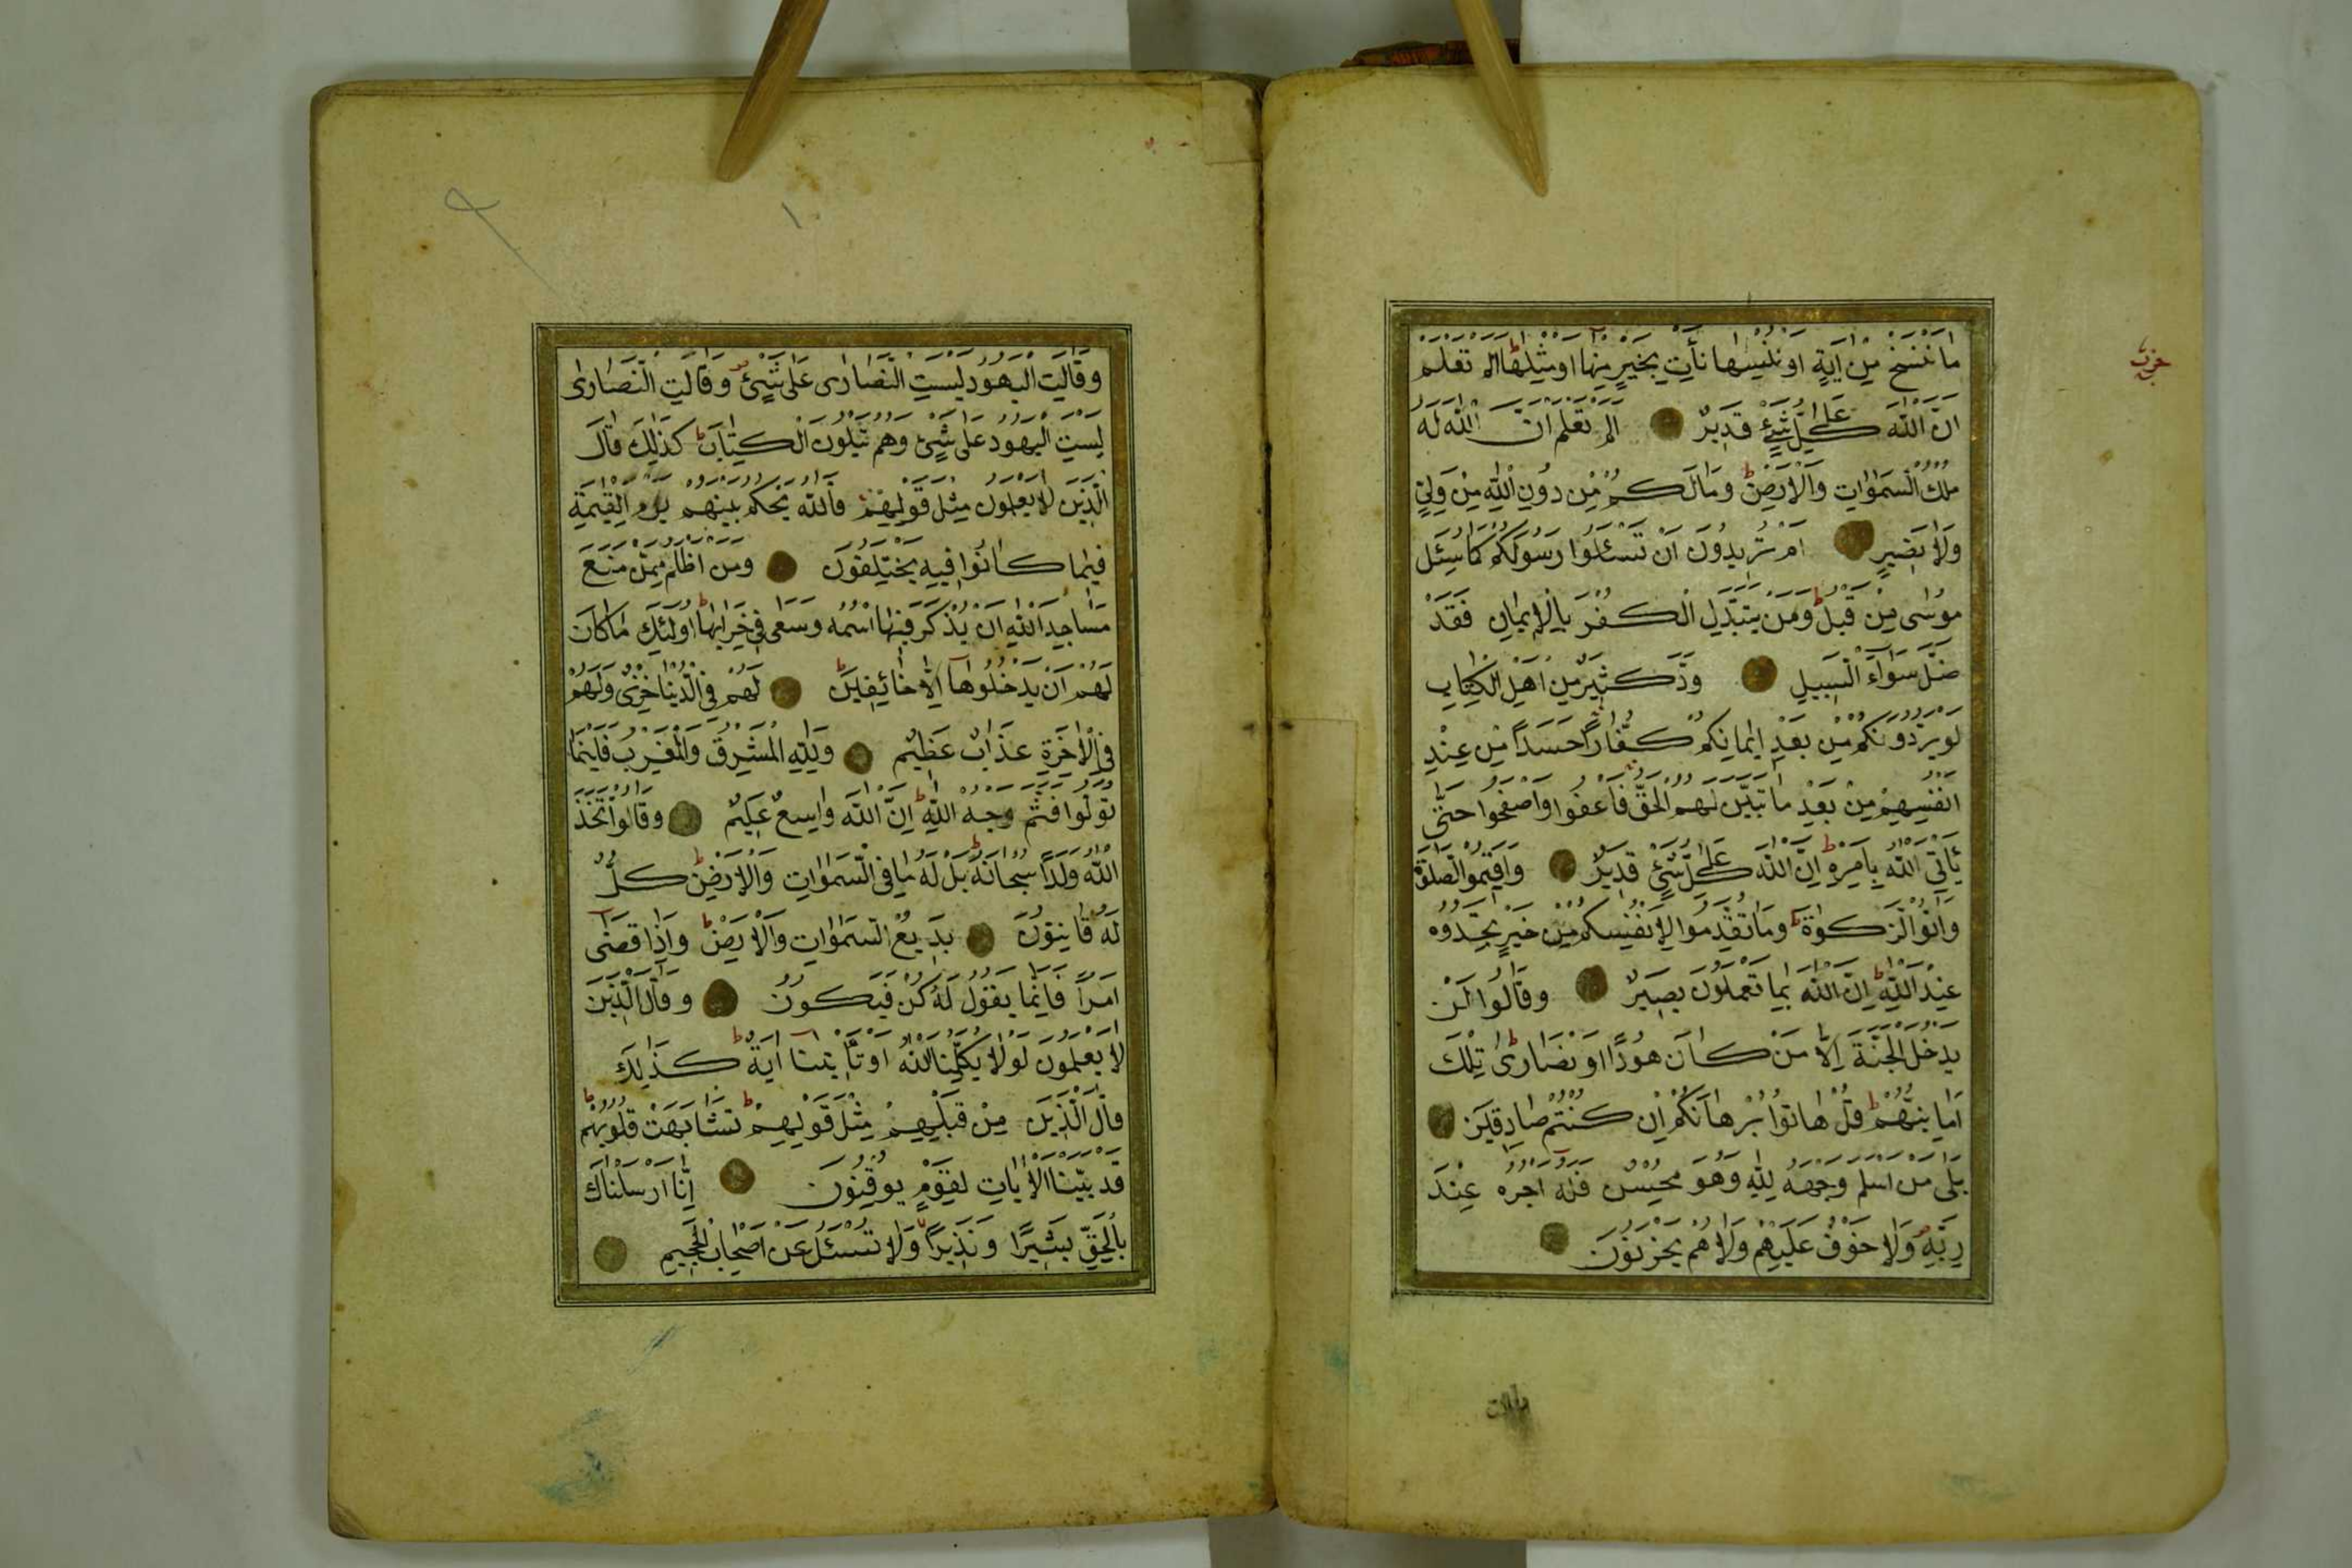 حزب
مَا نَنْسَخْ مِنْ اٰيَةٍ اَوْ نُنْسِهَا نَأْتِ بِخَيْرٍ مِنْهَا اَوْ مِثْلِهَا ط اَلَمْ تَعْلَمْ
اَنَّ اللّٰهَ عَلٰى كُلِّ شَيْءٍ قَدِيرٌ اَلَمْ تَعْلَمْ اَنَّ اللّٰهَ لَهُ
مُلْكُ السَّمٰوَاتِ وَالْاَرْضِ ط وَمَا لَكُمْ مِنْ دُونِ اللّٰهِ مِنْ وَلِيٍّ
وَلَا نَصِيرٍ اَمْ تُرِيدُونَ اَنْ تَسْئَلُوا رَسُولَكُمْ كَمَا سُئِلَ
مُوسٰى مِنْ قَبْلُ ط وَمَنْ يَتَبَدَّلِ الْكُفْرَ بِالْاِيمَانِ فَقَدْ
ضَلَّ سَوَاءَ السَّبِيلِ وَدَّ كَثِيرٌ مِنْ اَهْلِ الْكِتَابِ
لَوْ يَرُدُّونَكُمْ مِنْ بَعْدِ اِيمَانِكُمْ كُفَّارًا حَسَدًا مِنْ عِنْدِ
اَنْفُسِهِمْ مِنْ بَعْدِ مَا تَبَيَّنَ لَهُمُ الْحَقُّ فَاعْفُوا وَاصْفَحُوا حَتّٰى
يَأْتِيَ اللّٰهُ بِاَمْرِهِ ط اِنَّ اللّٰهَ عَلٰى كُلِّ شَيْءٍ قَدِيرٌ وَاَقِيمُوا الصَّلٰوةَ
وَاٰتُوا الزَّكٰوةَ ط وَمَا تُقَدِّمُوا لِاَنْفُسِكُمْ مِنْ خَيْرٍ تَجِدُوهُ
عِنْدَ اللّٰهِ ط اِنَّ اللّٰهَ بِمَا تَعْمَلُونَ بَصِيرٌ وَقَالُوا لَنْ
يَدْخُلَ الْجَنَّةَ اِلَّا مَنْ كَانَ هُودًا اَوْ نَصَارٰى ط تِلْكَ
اَمَانِيُّهُمْ ط قُلْ هَاتُوا بُرْهَانَكُمْ اِنْ كُنْتُمْ صَادِقِينَ
بَلٰى مَنْ اَسْلَمَ وَجْهَهُ لِلّٰهِ وَهُوَ مُحْسِنٌ فَلَهُ اَجْرُهُ عِنْدَ
رَبِّهِ وَلَا خَوْفٌ عَلَيْهِمْ وَلَا هُمْ يَحْزَنُونَ
وقالت
١
وَقَالَتِ الْيَهُودُ لَيْسَتِ النَّصَارٰى عَلٰى شَيْءٍ وَقَالَتِ النَّصَارٰى
لَيْسَتِ الْيَهُودُ عَلٰى شَيْءٍ وَهُمْ يَتْلُونَ الْكِتَابَ ط كَذٰلِكَ قَالَ
الَّذِينَ لَا يَعْلَمُونَ مِثْلَ قَوْلِهِمْ فَاللّٰهُ يَحْكُمُ بَيْنَهُمْ يَوْمَ الْقِيٰمَةِ
فِيمَا كَانُوا فِيهِ يَخْتَلِفُونَ وَمَنْ اَظْلَمُ مِمَّنْ مَنَعَ
مَسَاجِدَ اللّٰهِ اَنْ يُذْكَرَ فِيهَا اسْمُهُ وَسَعٰى فِي خَرَابِهَا ط اُولٰئِكَ مَا كَانَ
لَهُمْ اَنْ يَدْخُلُوهَا اِلَّا خَائِفِينَ ط لَهُمْ فِي الدُّنْيَا خِزْيٌ وَلَهُمْ
فِي الْاٰخِرَةِ عَذَابٌ عَظِيمٌ وَلِلّٰهِ الْمَشْرِقُ وَالْمَغْرِبُ فَاَيْنَمَا
تُوَلُّوا فَثَمَّ وَجْهُ اللّٰهِ ط اِنَّ اللّٰهَ وَاسِعٌ عَلِيمٌ وَقَالُوا اتَّخَذَ
اللّٰهُ وَلَدًا سُبْحَانَهُ ط بَلْ لَهُ مَا فِي السَّمٰوَاتِ وَالْاَرْضِ ط كُلٌّ
لَهُ قَانِتُونَ بَدِيعُ السَّمٰوَاتِ وَالْاَرْضِ ط وَاِذَا قَضٰى
اَمْرًا فَاِنَّمَا يَقُولُ لَهُ كُنْ فَيَكُونُ وَقَالَ الَّذِينَ
لَا يَعْلَمُونَ لَوْلَا يُكَلِّمُنَا اللّٰهُ اَوْ تَأْتِينَا اٰيَةٌ ط كَذٰلِكَ
قَالَ الَّذِينَ مِنْ قَبْلِهِمْ مِثْلَ قَوْلِهِمْ ط تَشَابَهَتْ قُلُوبُهُمْ ط
قَدْ بَيَّنَّا الْاٰيَاتِ لِقَوْمٍ يُوقِنُونَ اِنَّا اَرْسَلْنَاكَ
بِالْحَقِّ بَشِيرًا وَنَذِيرًا وَلَا تُسْئَلُ عَنْ اَصْحَابِ الْجَحِيمِ